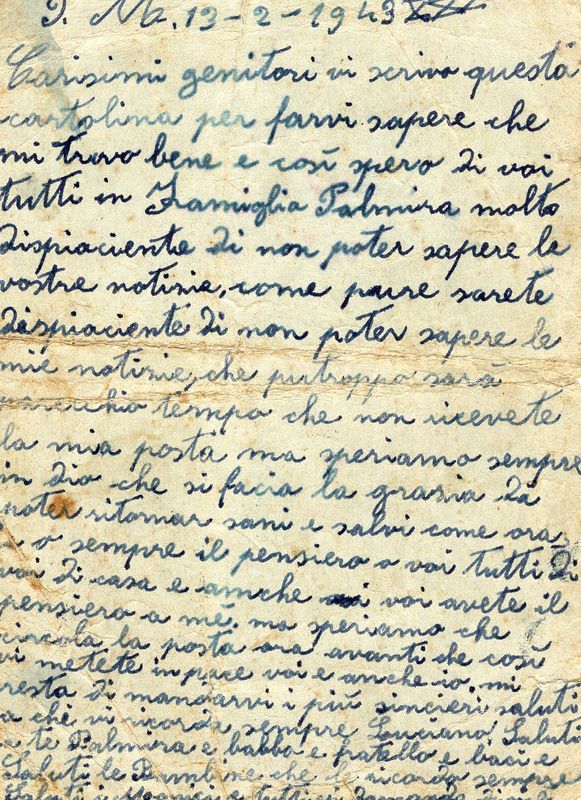 P. M. 13-2-1943 XXI
Carisimi genitori vi scrivo questa
cartolina per farvi sapere che
mi trovo bene e così spero di voi
tutti in Famiglia Palmira molto
dispiaciente di non poter sapere le
vostre notisie, come pure sarete
dispiaciente di non poter sapere le
mie notizie, che putroppo sarà
parecchio tempo che non ricevete
la mia posta ma speriamo sempre
in Dio che si facia la grasia di
poter ritornar sani e salvi come ora,
o sempre il pensiero a voi tutti di
voi di casa e amche voi avete il
pensiero a mè. ma speriamo che
circola la posta ora avanti che così
vi metete in pace voi e anche io. mi
resta di mandarvi i più sincieri saluti
a chè vi ricorda sempre Luciano. Saluti
a te Palmira e babbo e fratello e baci e
Saluti le Bambine che le ricordo sempre
Saluti e tutti